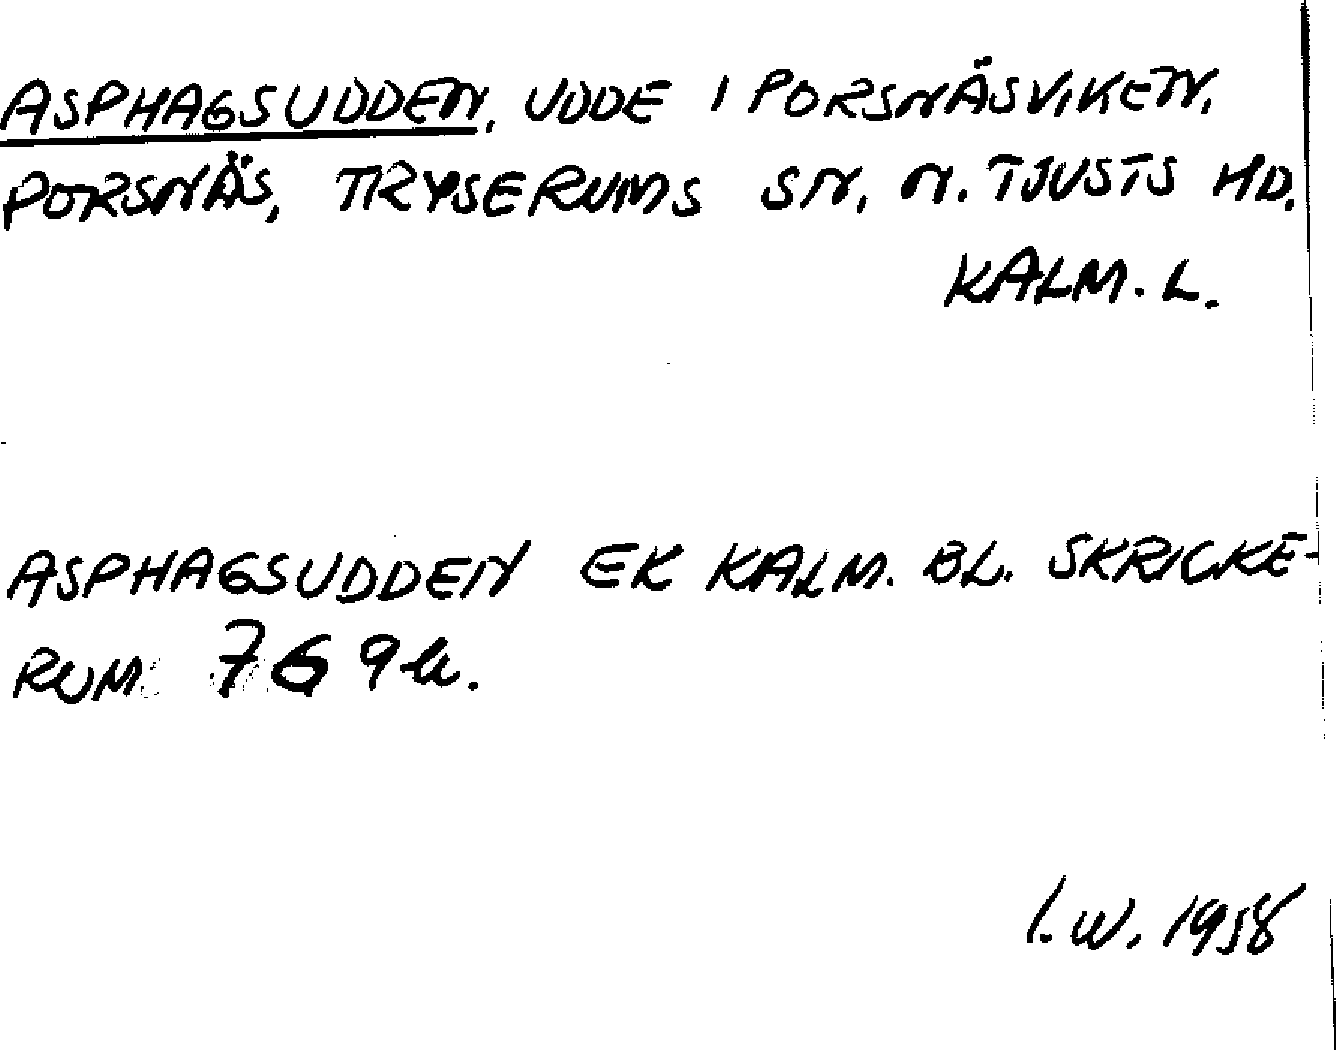 ASPHAGSUDDEN, UDDE I PORSNÄSVIKEN,
PORSNÄS, TRYSERUMS SN, N. TJUSTS HD.
KALM. L.
ASPHAGSUDDEN EK KALM. BL. SKRICKE-
RUM 769k.
I.W. 1958